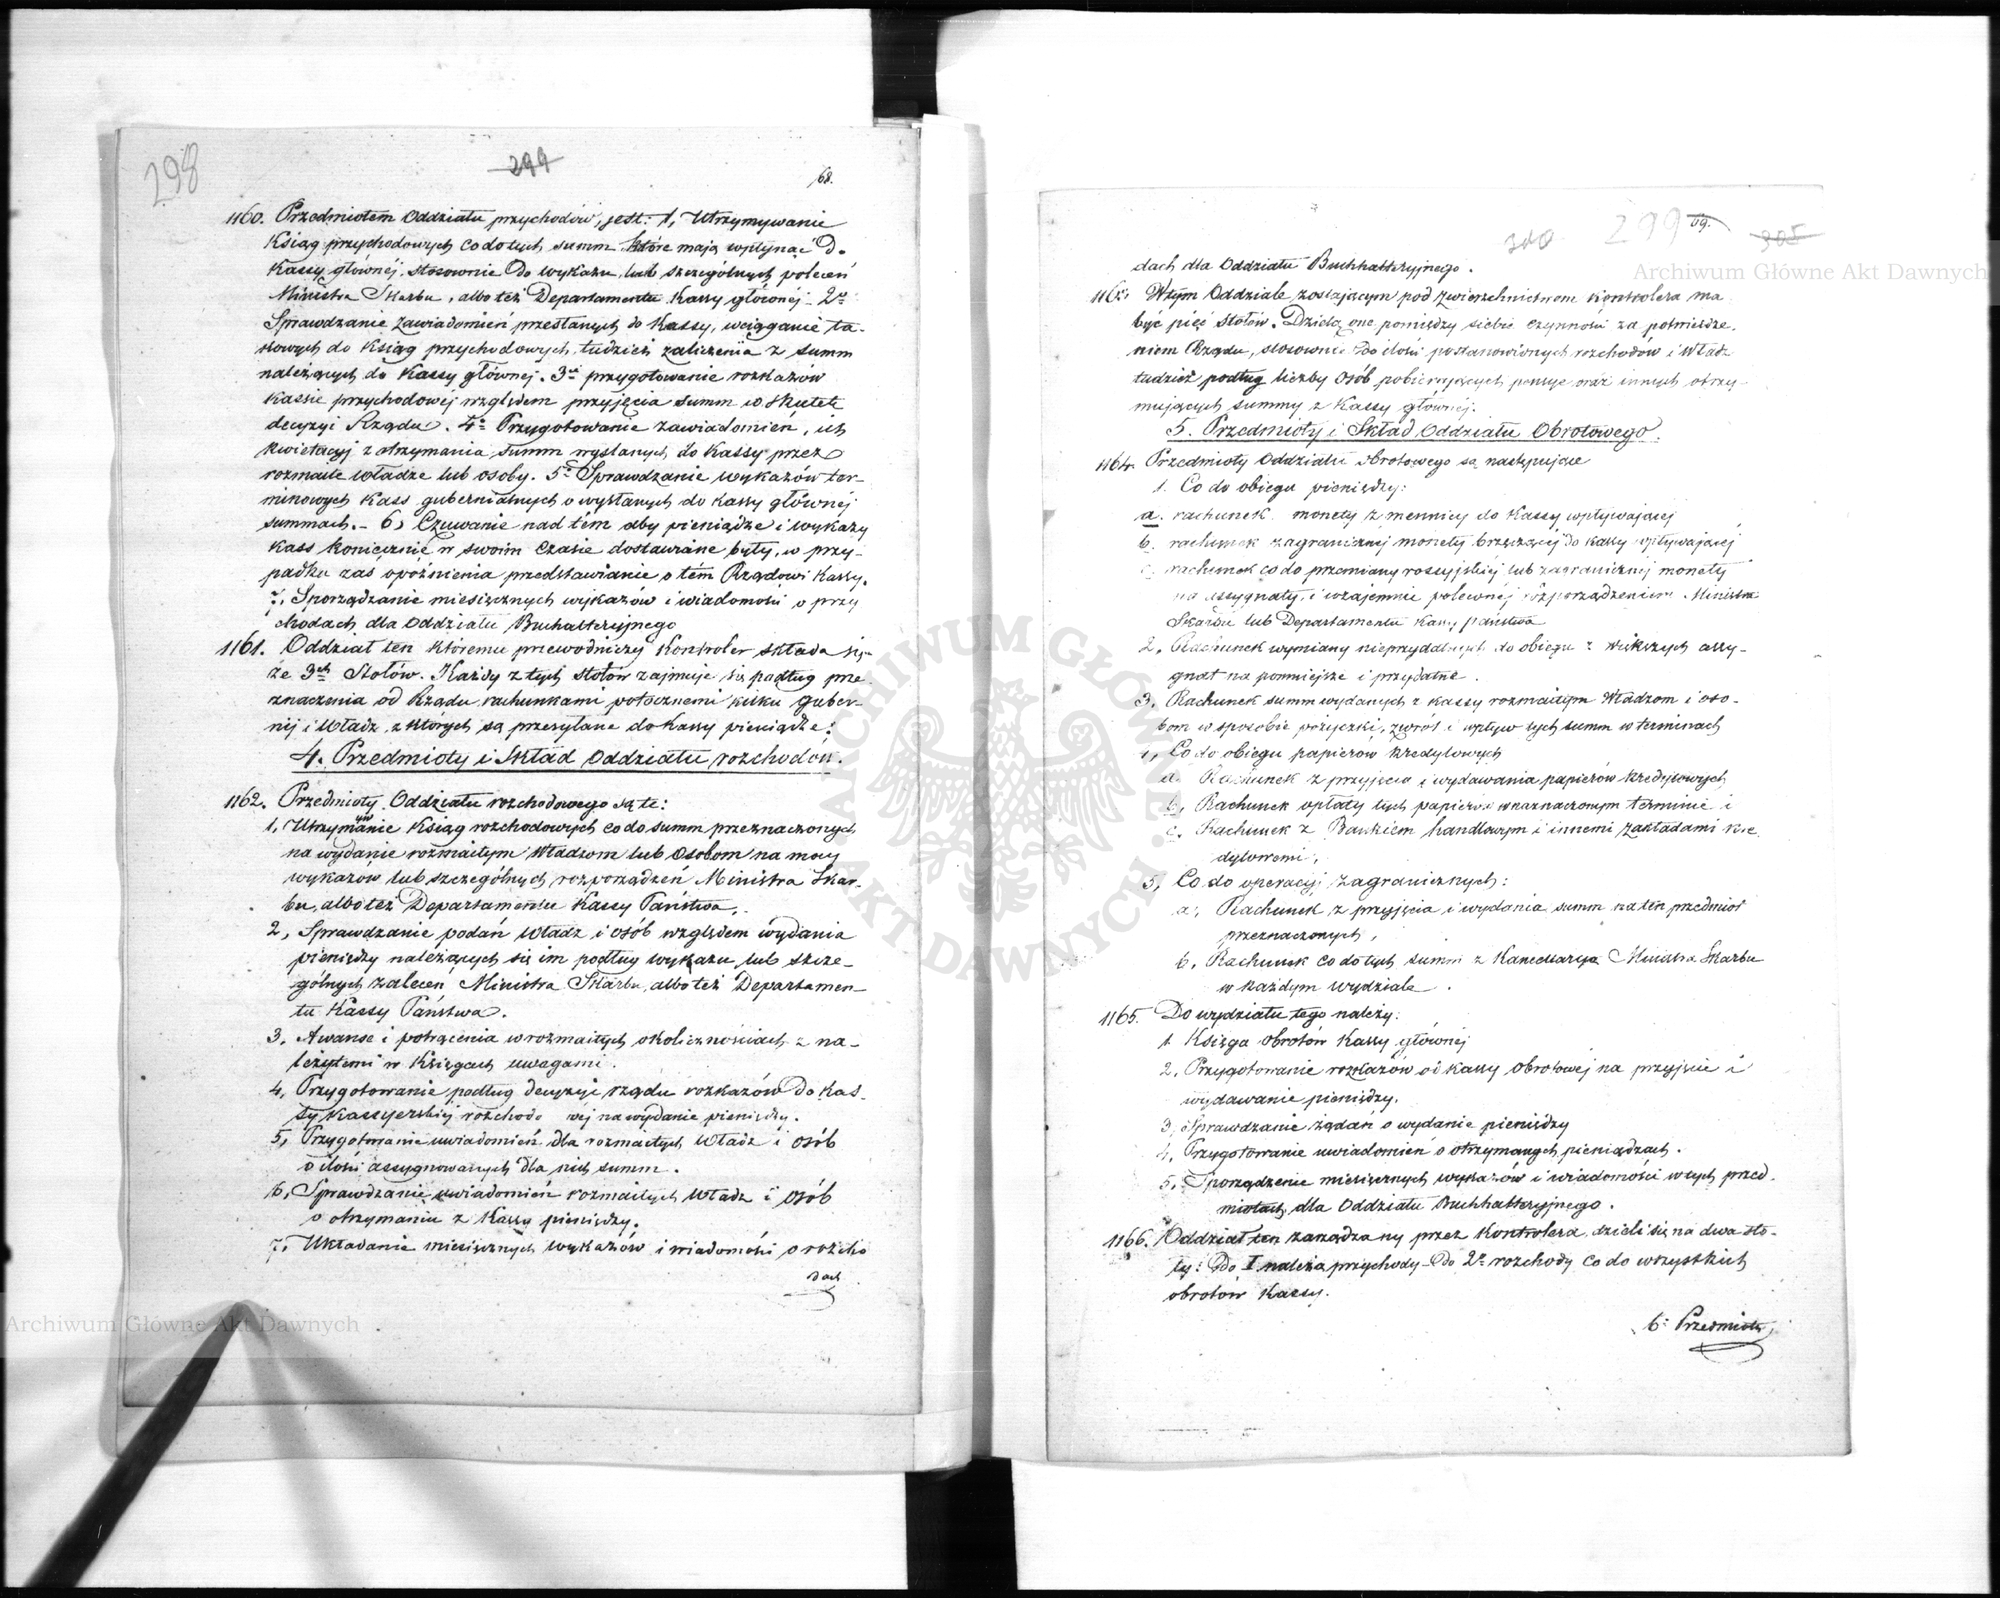 298
299
68.
1160. Przedmiotem Oddziału przychodów, jest: 1, Utrzymywanie
Ksiąg przychodowych co do tych summ które mają wpłynąć do
Kassy głównej, stosownie do wykazu, lub szczególnych poleceń
Ministra Skarbu, albo też Departamentu Kassy głównej 2re
Sprawdzanie zawiadomień przesłanych do Kassy, wciąganie ta-
kowych do Ksiąg przychodowych, tudzież zaliczenia z summ
należących do Kassy głównej. 3e przygotowanie rozkazów
Kassie przychodowej względem przyjęcia summ w skutek
decyzyi Rządu. 4e Przygotowanie zawiadomień, ich
Kwietacyj z otrzymania summ wysłanych do Kassy przez
rozmaite władze lub osoby. 5e Sprawdzanie wykazów ter-
minowych Kass gubernialnych o wysłanych do Kassy głównej
summach. - 6, Czuwanie nad tém aby pieniądze i wykazy
Kass koniecznie w swoim czasie dostawiane były, w przy-
padku zaś opóźnienia przedstawianie o tem Rządowi Kassy.
7, Sporządzanie miesięcznych wykazów i wiadomości o przy
chodach dla Oddziału Buchhalteryjnego
1161. Oddział ten któremu przewodniczy Kontroler składa się
ze 3ch Stołów. Każdy z tych stołów zajmuje się podług prze
znaczenia od Rządu rachunkami potocznemi kilku guber-
nij i Władz z których są przesyłane do Kassy pieniądze:
4. Przedmioty i Skład Oddziału rozchodów.
1162. Przedmioty Oddziału rozchodowego są te:
1, Utrzymanie Ksiąg rozchodowych co do summ przeznaczonych
na wydanie rozmaitym Władzom lub Osobom na mocy
wykazów lub szczególnych rozporządzeń Ministra Skar-
bu, albo też Departamentu Kassy Państwa.
2, Sprawdzanie podań Władz i osób względem wydania
pieniędzy należących się im podług wykazu, lub szcze-
gólnych zaleceń Ministra Skarbu, albo też Departamen-
tu Kassy Państwa.
3, Awanse i potrącenia w rozmaitych okolicznościach z na-
leżytemi w Księgach uwagami.
4, Przygotowanie podług decyzyi rządu rozkazów do Kas-
sy kassyerskiej rozchodo wej na wydanie pieniędzy.
5, Przygotowanie uwiadomień dla rozmaitych Władz i osób
o ilości assygnowanych dla nich summ.
6, Sprawdzanie uwiadomień rozmaitych Władz i osób
o otrzymaniu z Kassy pieniędzy.
7, Układanie miesięcznych wykazów i wiadomości o rozcho
dach
300 299 69. 305
dach dla Oddziału Buchhalteryjnego.
1163. W tym Oddziale zostającym pod zwierzchnictwem kontrolera ma
być pięć stołów. Dzielą one pomiędzy siebie czynności za potwierdze-
niem Rządu, stosownie do ilości postanowionych rozchodów i Władz
tudzież podług liczby osób pobierających pensye oraz innych otrzy-
mujących summy z Kassy głównej.
5. Przedmioty i Skład Oddziału Obrotowego.
1164. Przedmioty Oddziału obrotowego są następujące
1. Co do obiegu pieniędzy:
a. rachunek monety z mennicy do Kassy wpływającej
b. rachunek zagranicznej monety brzęczącej do kassy wpływającej
c. rachunek co do przemiany rossyjskiej lub zagranicznej monety
na assygnaty, i wzajemnie rozporządzeniem Ministra
Skarbu lub Departamentu Kassy państwa
2, Rachunek wymiany nieprzydatnych do obiegu z większych assy-
gnat na pomniejsze i przydatne.
3, Rachunek summ wydanych z kassy rozmaitym Władzom i oso-
bom w sposobie pożyczki, zwrót i wpływ tych summ w terminach
4, Co do obiegu papierów kredytowych
a. Rachunek z przyjęcia i wydawania papierów kredytowych,
b, Rachunek opłaty tych papierów w naznaczonym terminie i
c. Rachunek z Bankiem handlowym i innemi zakładami kre
dytowemi,
5, Co do operacyj zagranicznych:
a, Rachunek z przyjęcia i wydania summ na ten przedmiot
przeznaczonych,
b, Rachunek co do tych summ z Kancellaryą Ministra Skarbu
w każdym wydziale.
1165. Do wydziału tego należy:
1. Księga obrotów Kassy głównej
2, Przygotowanie rozkazów od kassy obrotowej na przyjęcie i
wydawanie pieniędzy.
3, Sprawdzanie żądań o wydanie pieniędzy
4, Przygotowanie uwiadomień o otrzymanych pieniądzach.
5, Sporządzenie miesięcznych wykazów i wiadomości w tych przed-
miotach dla Oddziału Buchhalteryjnego.
1166. Oddział ten zarządzany przez Kontrolera, dzieli się na dwa sto-
ły: Do I należą przychody - Do 2o rozchody co do wszystkich
obrotów Kassy.
6. Przedmioty
Archiwum Główne Akt Dawnych
Archiwum Główne Akt Dawnych
ARCHIWUM GŁÓWNE AKT DAWNYCH